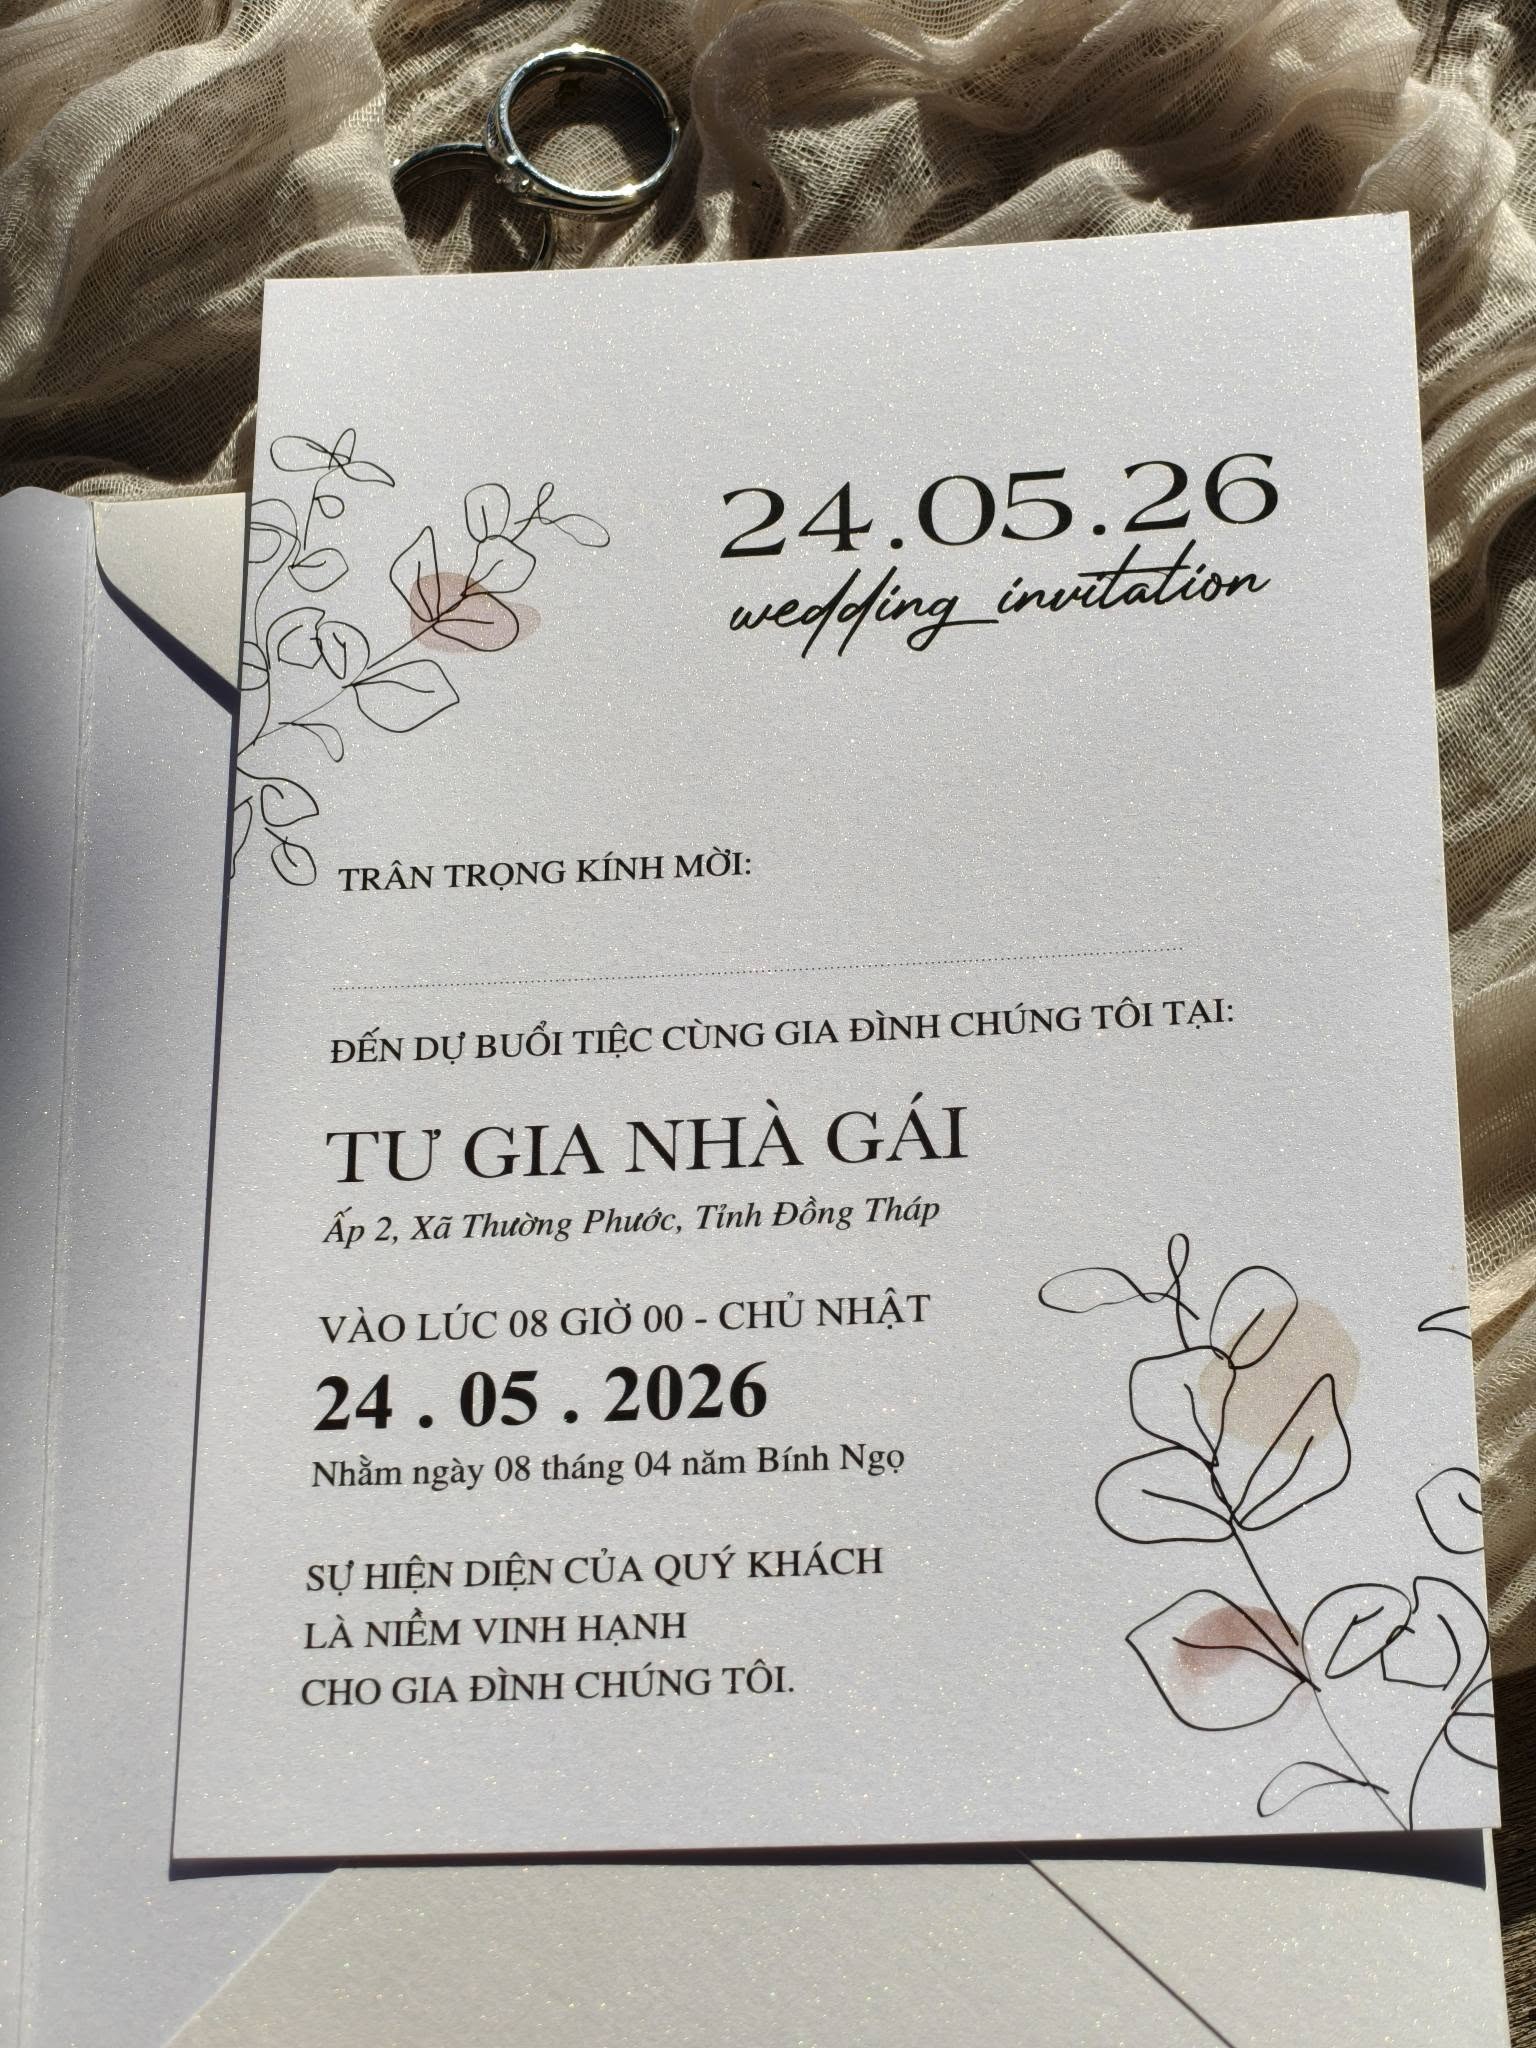 24.05.26
wedding invitation
TRÂN TRỌNG KÍNH MỜI:
ĐẾN DỰ BUỔI TIỆC CÙNG GIA ĐÌNH CHÚNG TÔI TẠI:
TƯ GIA NHÀ GÁI
Ấp 2, Xã Thường Phước, Tỉnh Đồng Tháp
VÀO LÚC 08 GIỜ 00 - CHỦ NHẬT
24 . 05 . 2026
Nhằm ngày 08 tháng 04 năm Bính Ngọ
SỰ HIỆN DIỆN CỦA QUÝ KHÁCH
LÀ NIỀM VINH HẠNH
CHO GIA ĐÌNH CHÚNG TÔI.